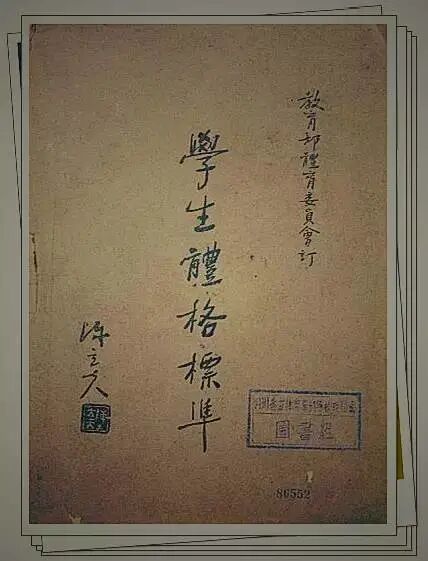 教育部體育委員會訂
學生體格標準
陳立夫
圖書組
80552